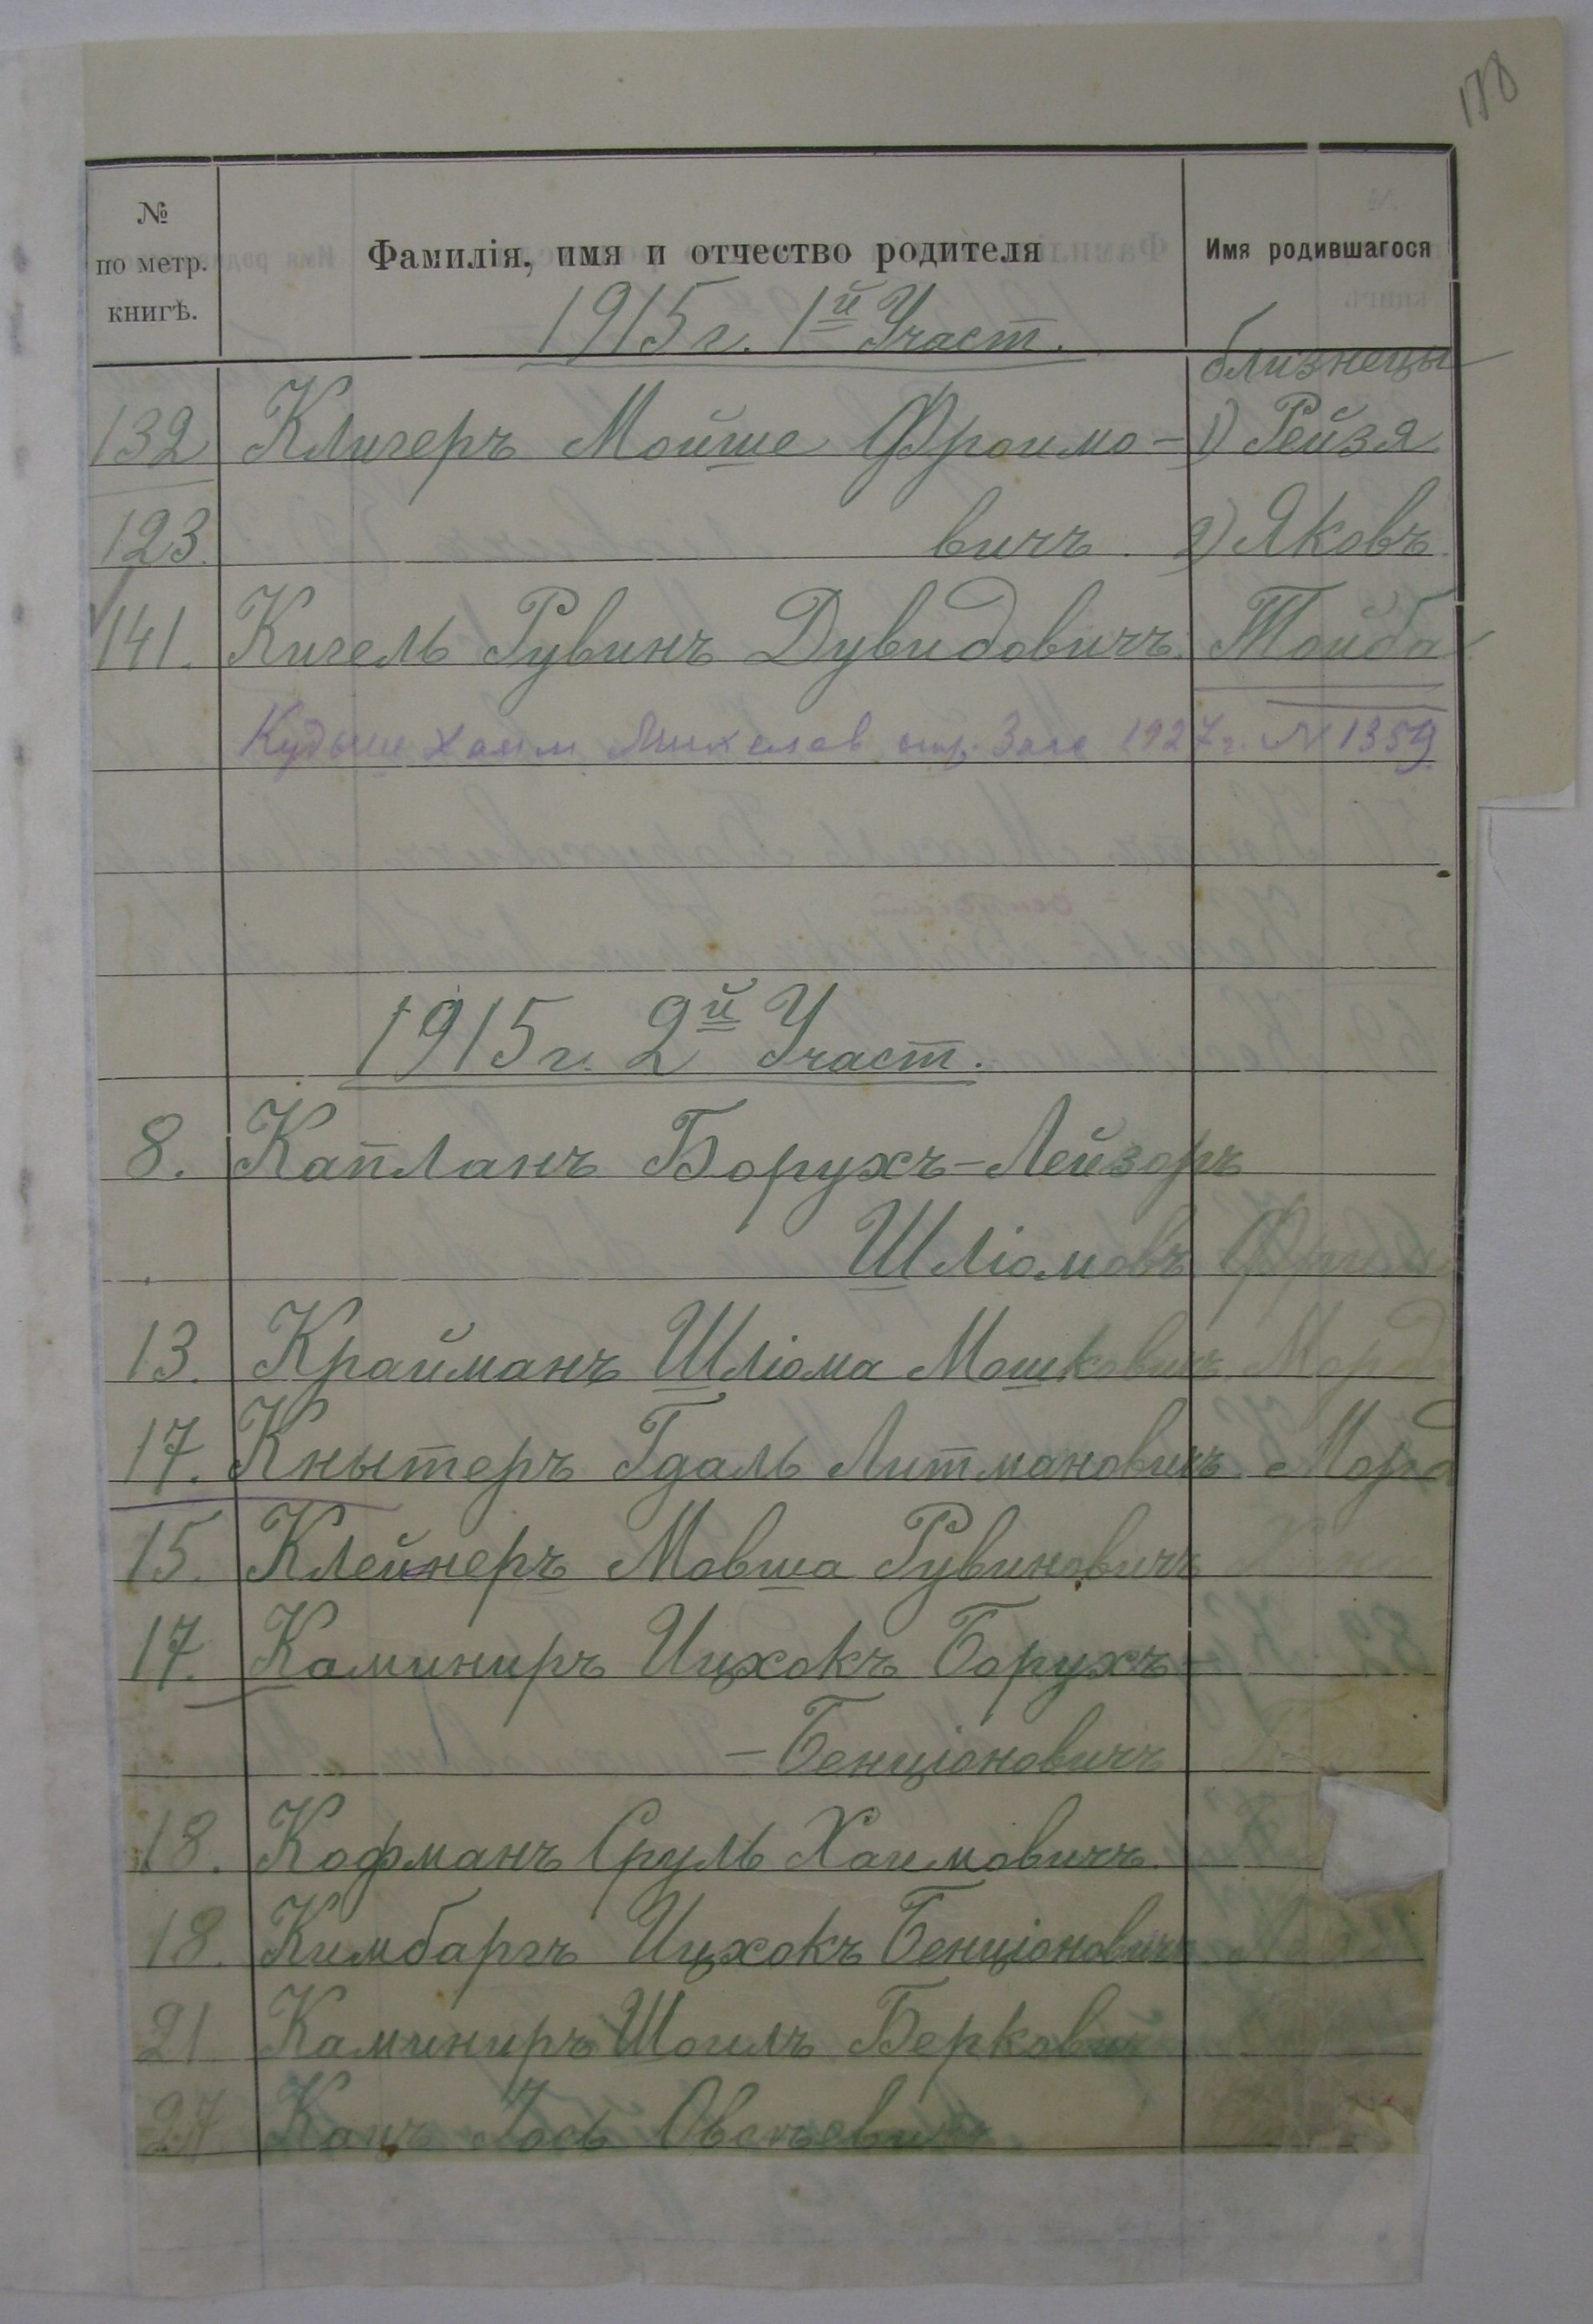 178
№ по метр. книгѣ.
Фамилія, имя и отчество родителя
Имя родившагося
1915 г. 1й Участ.
близнецы
132 Клигеръ Мойше Фроимо- 1) Рейзя
123. вичъ. 2) Яковъ
141. Кигель Рувинъ Дувидовичъ. Тойба
Кудыш Хаим 1927 г. № 1359
1915 г. 2й Участ.
8. Капланъ Борухъ-Лейзоръ
Шліомовъ
13. Крайманъ Шліома Мошковичъ
17. Кнытеръ Гдаль Литмановичъ
15. Клейнеръ Мовша Рувиновичъ
17. Каминиръ Ицхокъ Борухъ-
-Бенціоновичъ
18. Кофманъ Сруль Хаимовичъ.
18. Кимбаргъ Ицхокъ Бенціоновичъ
21 Каминиръ Шоилъ
27 Кацъ Іось